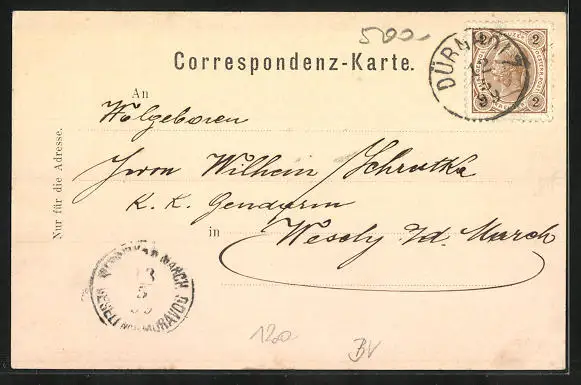 500
Correspondenz-Karte.
DÜRNHOLZ
2 2
2 2
An
Wolgeboren
Herrn Wilhelm Schrutka
K. K. Gendarm
in Wesely a/d. March
Nur für die Adresse.
MARCH
13
5
99
VESELÍ NAD MORAVOU
120
BV